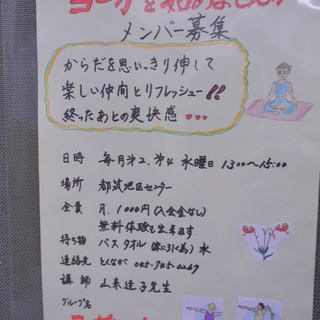 ヨーガを始めましょう
メンバー募集
からだを思いっきり伸して
楽しい仲間とリフレッシュー!!
終ったあとの爽快感・・・
日時 毎月第2.第4 水曜日 13:00~15:00
場所 都筑地区センター
会費 月.1000円(入会金なし)
無料体験も出来ます
持ち物 バスタオル(床に引く為) 水
連絡先 とくなが 045-945-0269
講師 山来達子先生
グループ名